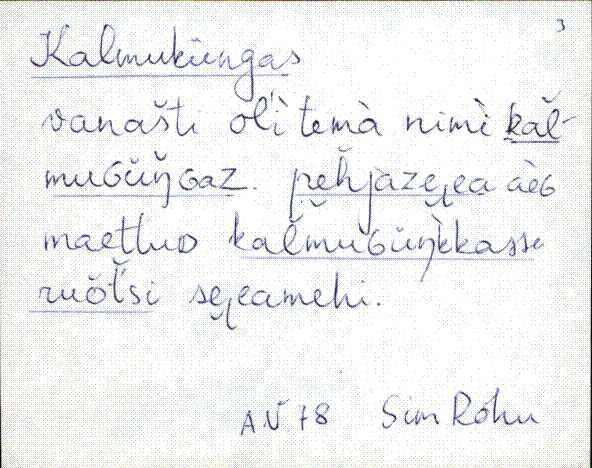 3
Kalmuküngas
vanašti oľì temà nimì kaľ-
muGüŋGaz. pĕh́jazeᴉea àeG
maetluD kaľmuGüŋ̀kkasse
ruòťsi seᴉeamehi.
AN 78 Sim Rõhu